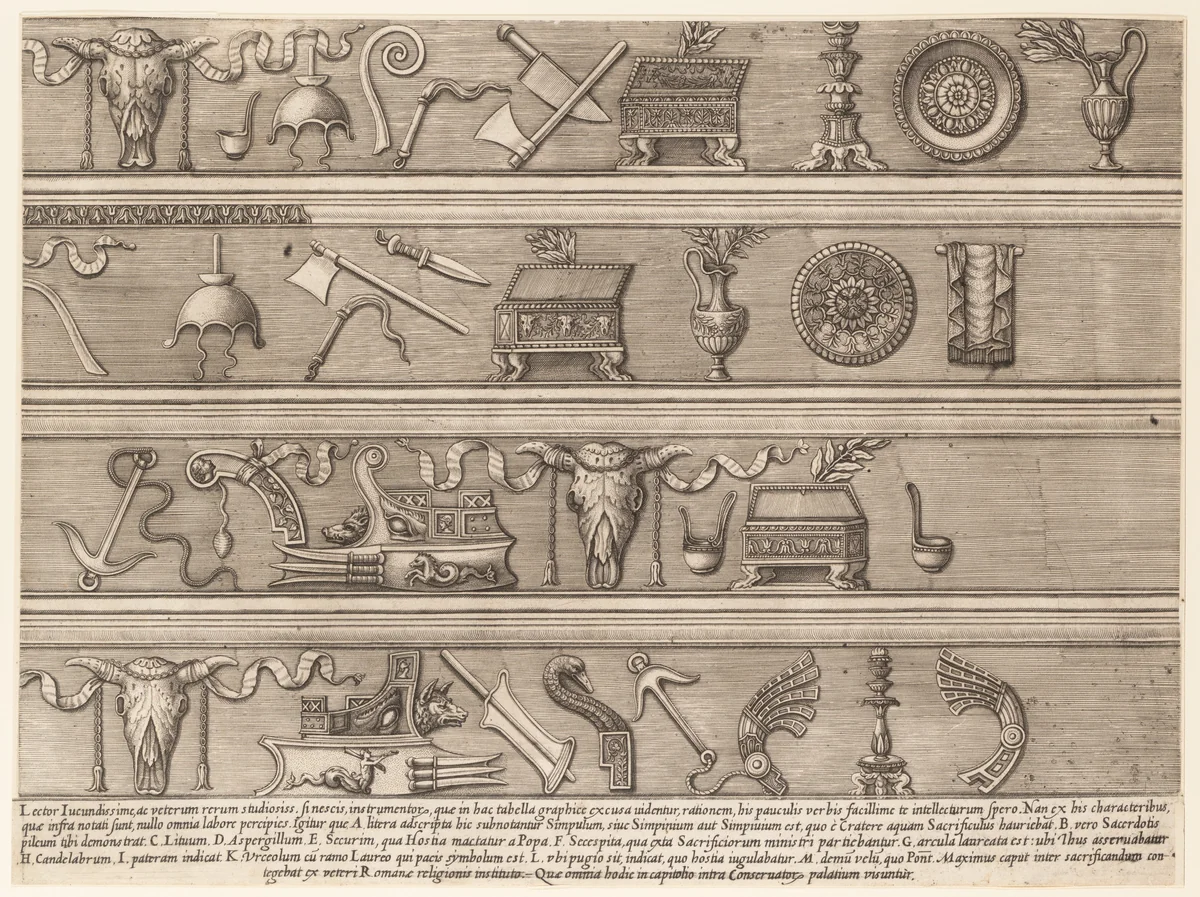 Lector Iucundissime, ac veterum rerum studiosiss. si nescis, instrumentoꝝ, quæ in hac tabella graphice excusa uidentur, rationem, his pauculis verbis facillime te intellecturum spero. Nan ex his characteribus,
quæ infra notati sunt, nullo omnia labore percipies. Igitur que A. litera adscripta hic subnotantur Simpulum, siue Simpinium aut Simpiuium est, quo è Cratere aquam Sacrificulus hauriebat. B. vero Sacerdotis
pileum tibi demonstrat. C. Lituum. D. Aspergillum. E. Securim, qua Hostia mactatur a Popa. F. Secespita, qua exta Sacrificiorum ministri partiebantur. G. arcula laureata est: ubi Thus asseruabatur
H. Candelabrum. I. pateram indicat. K. Vrceolum cū ramo Laureo qui pacis symbolum est. L. vbi pugio sit, indicat, quo hostia iugulabatur. M. demū velū, quo Pont. Maximus caput inter sacrificandum con
tegebat ex veteri Romanæ religionis instituto. Quæ omnia hodie in capitolio intra Conseruatoꝝ palatium visuntur.